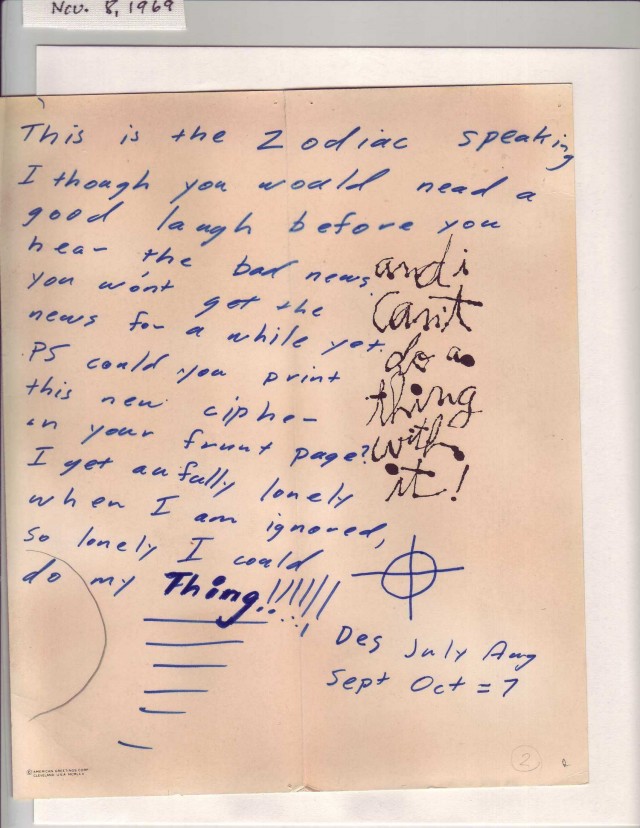 Nov. 8, 1969
This is the Zodiac speaking
I though you would nead a
good laugh before you
hear the bad news
you won't get the
news for a while yet.
PS could you print
this new cipher
in your frunt page?
I get aufully lonely
when I am ignored,
so lonely I could
do my Thing!!!!!!
and i
can't
do a
thing
with
it!
Des July Aug
Sept Oct = 7
© AMERICAN GREETINGS CORP.
CLEVELAND, U.S.A.
2